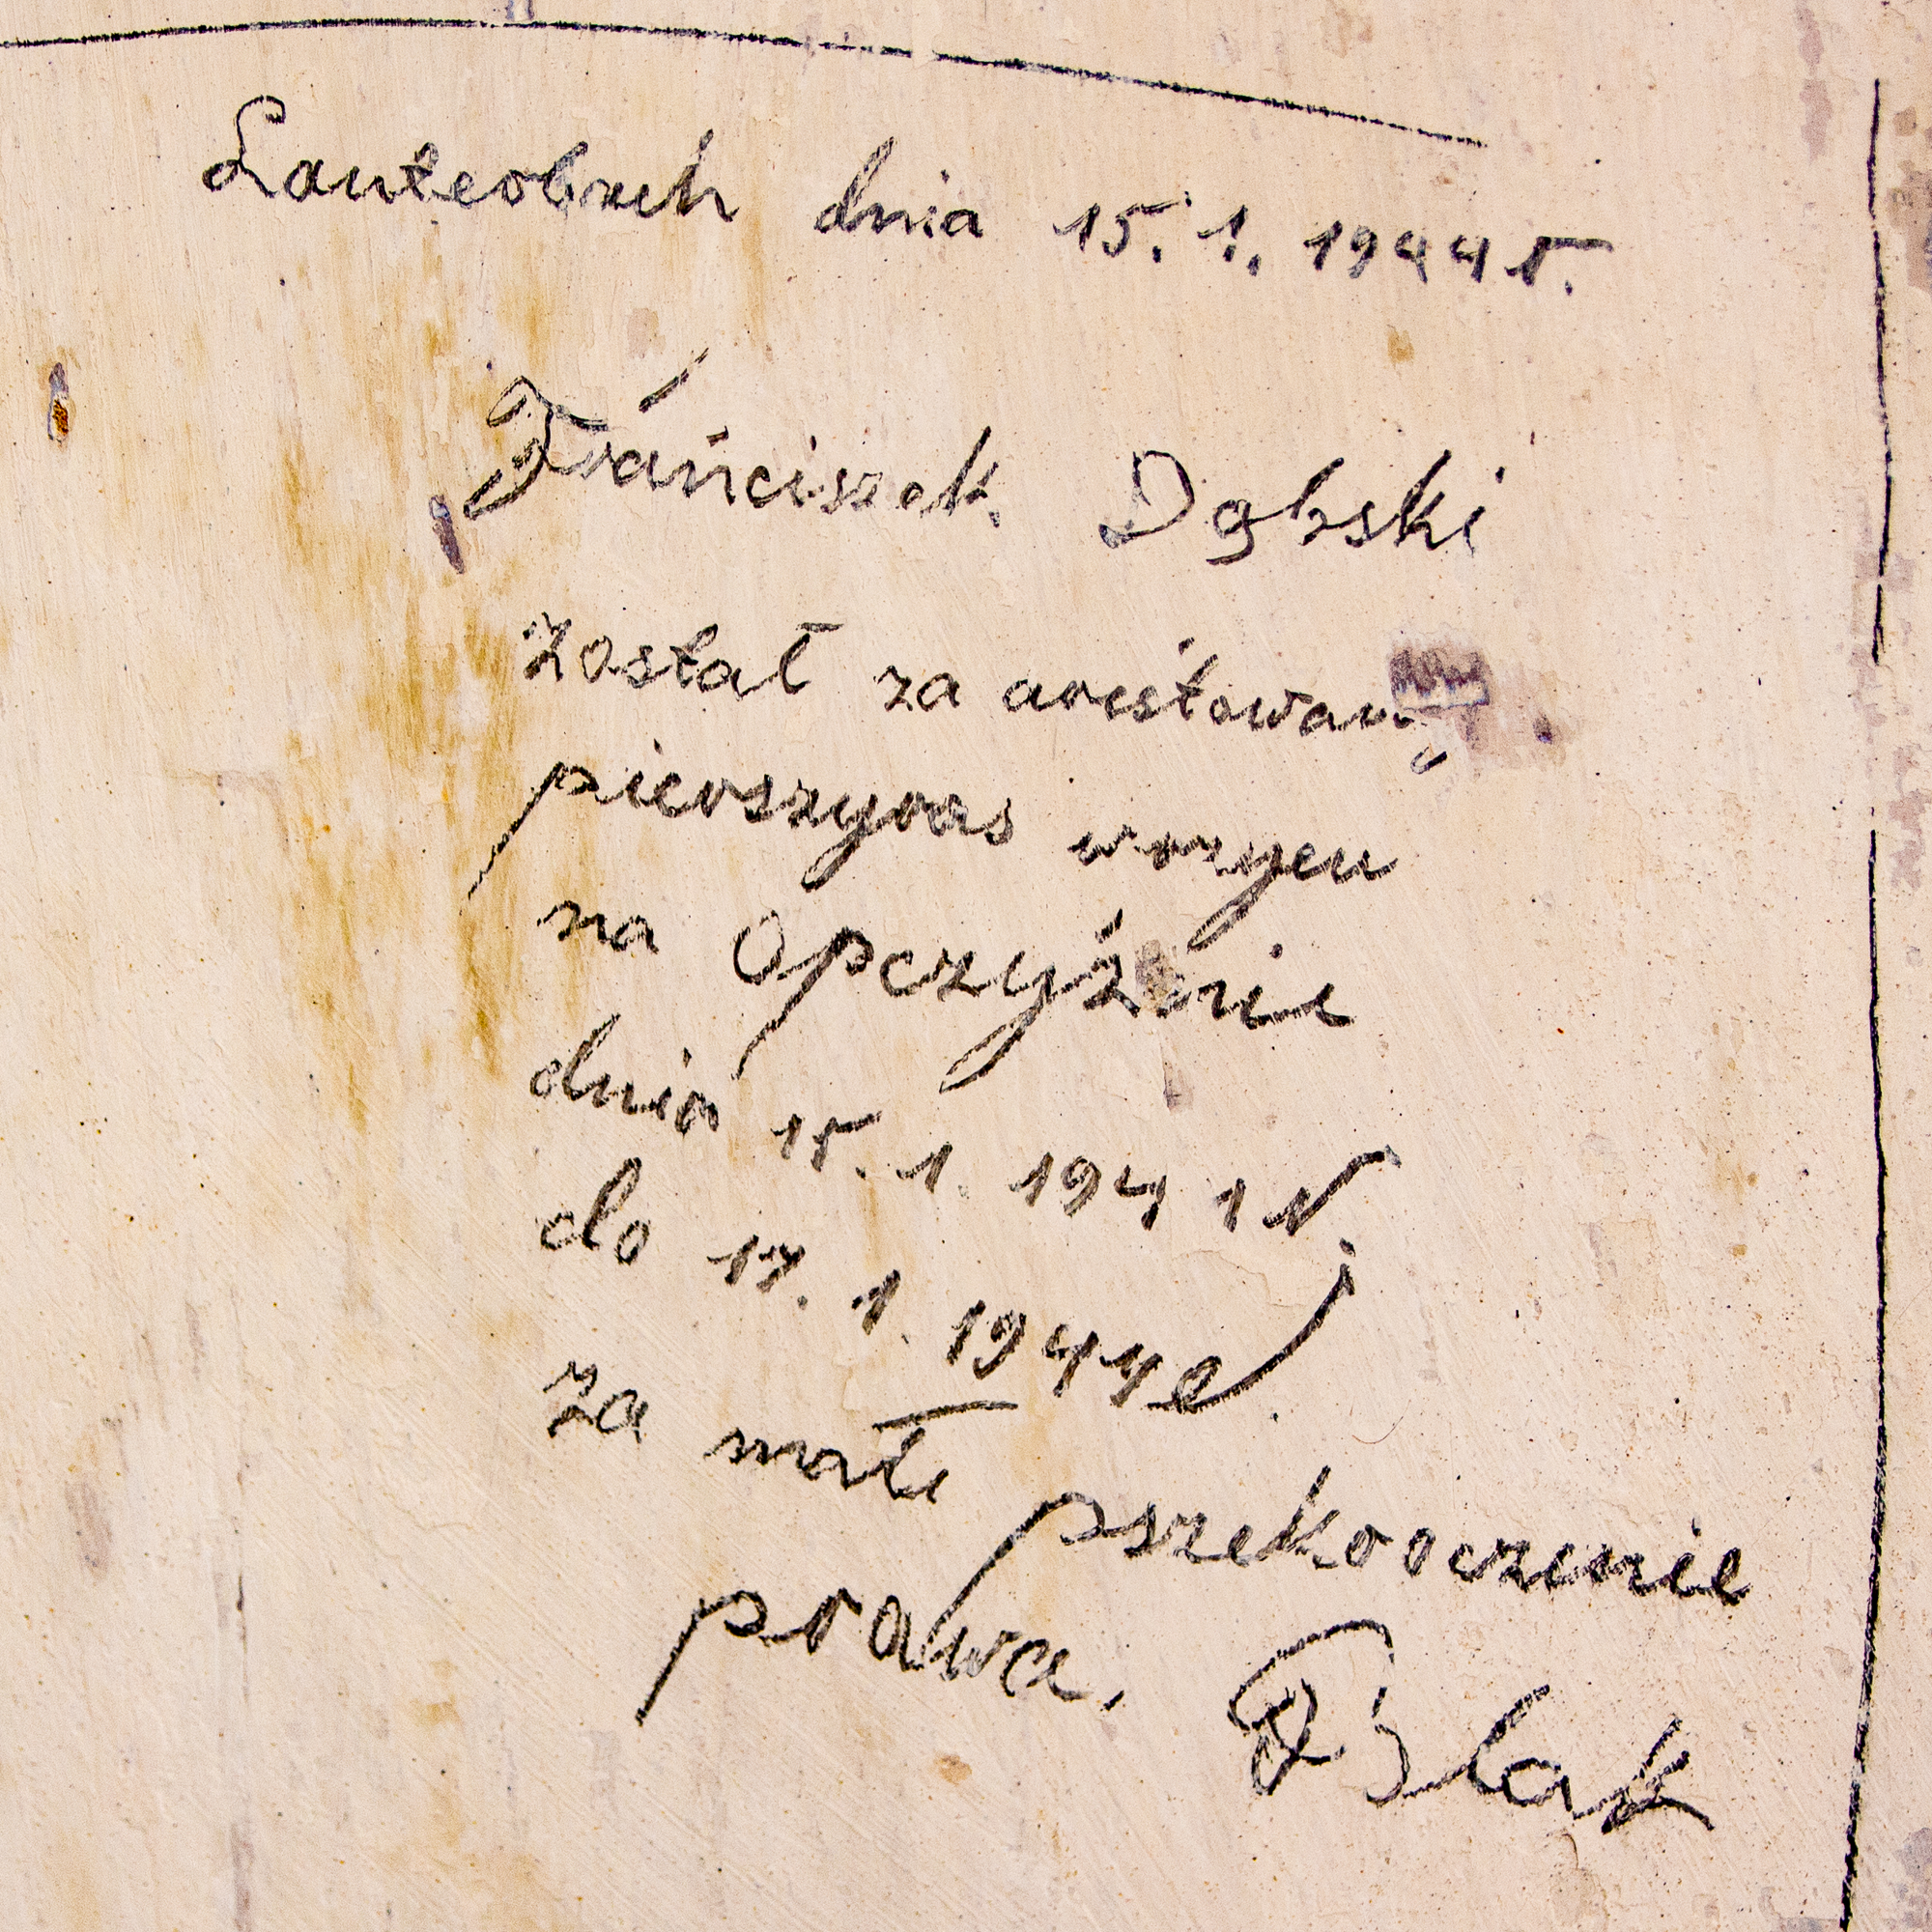 Lauterbach dnia 15. 1. 1944 r.
Fráńciszek Dąbski
został za arestowany
pierszyras wrzycu
na Opczyźnie
dnia 15. 1. 1944 r.
do 17. 1. 1944 r.
za małe pszekroczenie
prawa. Polak